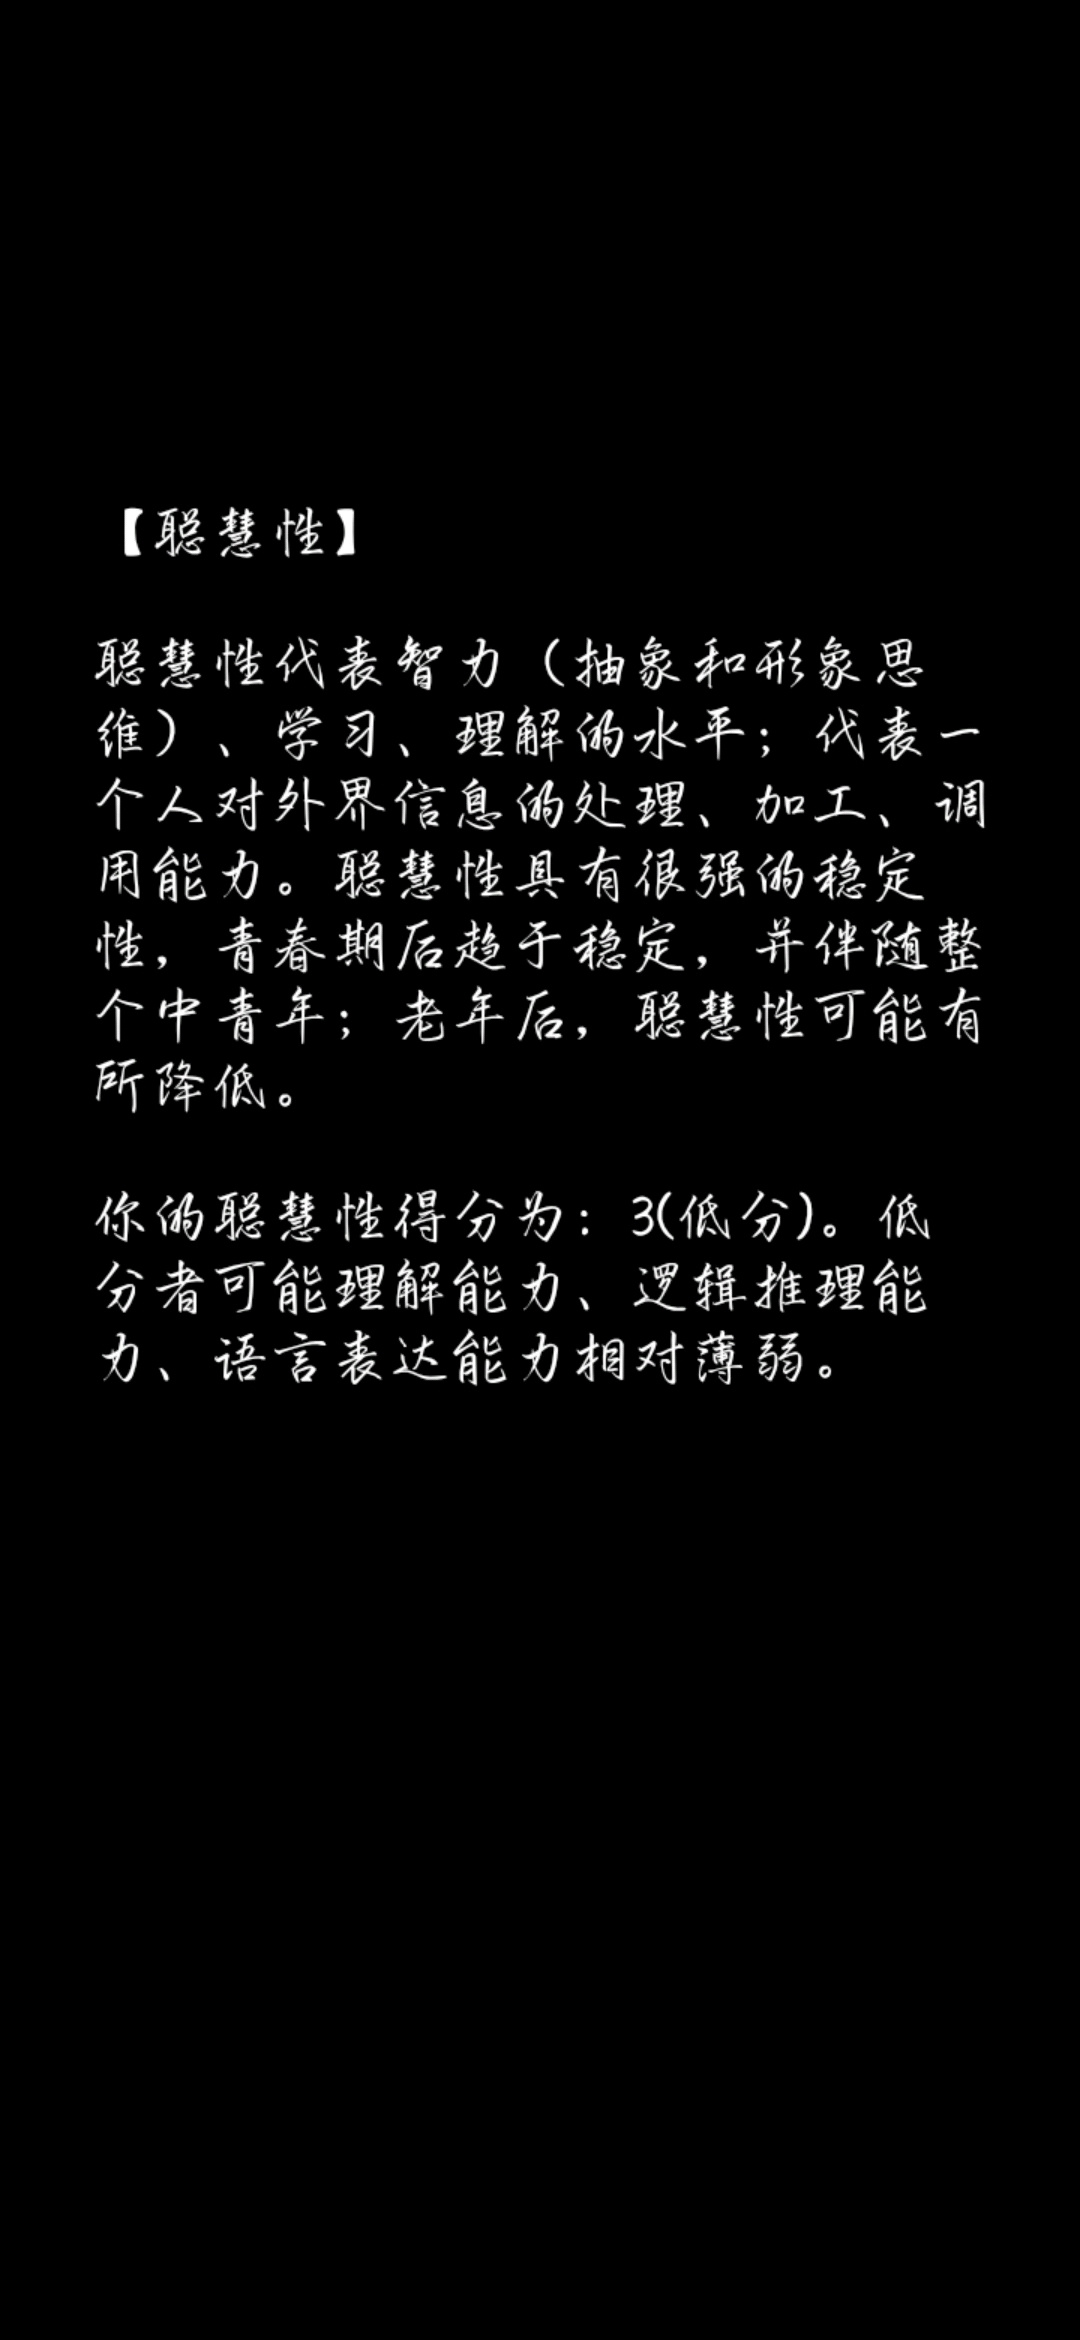 【聪慧性】
聪慧性代表智力（抽象和形象思
维）、学习、理解的水平；代表一
个人对外界信息的处理、加工、调
用能力。聪慧性具有很强的稳定
性，青春期后趋于稳定，并伴随整
个中青年；老年后，聪慧性可能有
所降低。
你的聪慧性得分为：3(低分)。低
分者可能理解能力、逻辑推理能
力、语言表达能力相对薄弱。